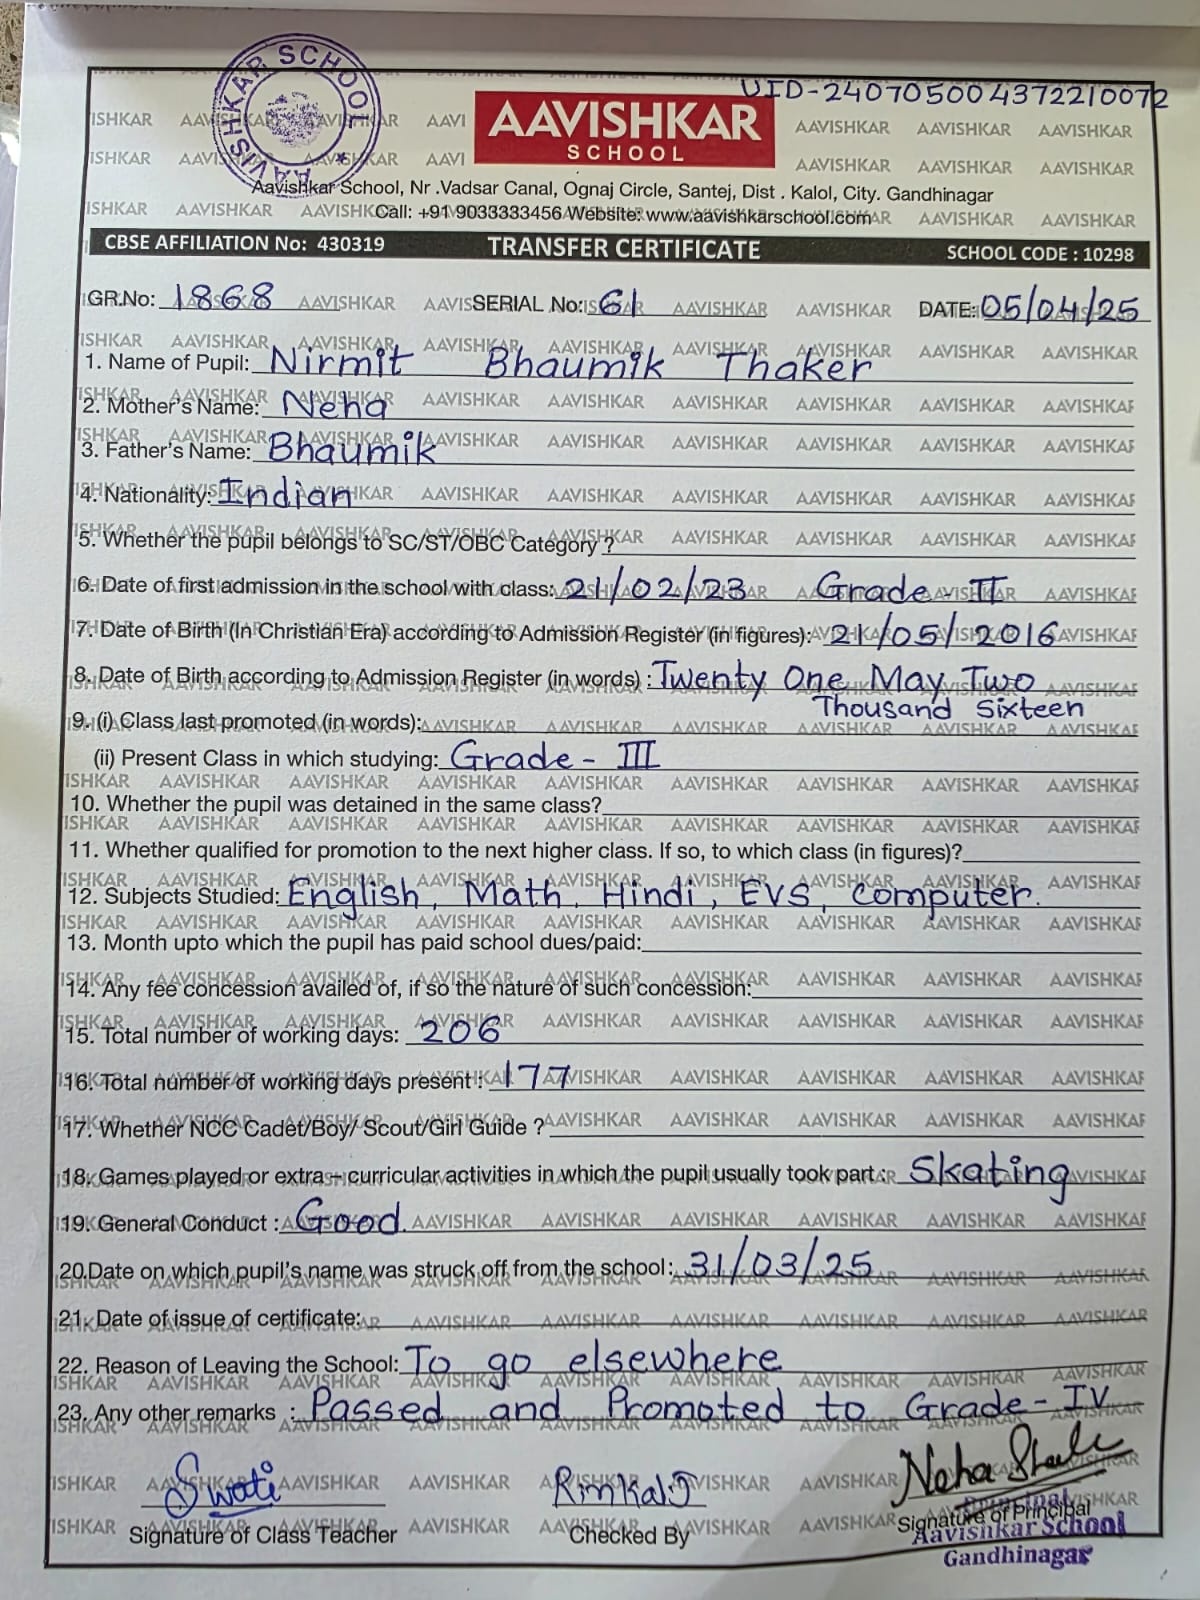 AAVISHKAR SCHOOL
UID-240705004372210072
AAVISHKAR
SCHOOL
Aavishkar School, Nr .Vadsar Canal, Ognaj Circle, Santej, Dist . Kalol, City. Gandhinagar
Call: +91 9033333456 Website: www.aavishkarschool.com
CBSE AFFILIATION No: 430319 TRANSFER CERTIFICATE SCHOOL CODE : 10298
GR.No: 1868 SERIAL No: 61 DATE: 05/04/25
1. Name of Pupil: Nirmit Bhaumik Thaker
2. Mother's Name: Neha
3. Father's Name: Bhaumik
4. Nationality: Indian
5. Whether the pupil belongs to SC/ST/OBC Category ?
6. Date of first admission in the school with class: 21/02/23 Grade - II
7. Date of Birth (In Christian Era) according to Admission Register (in figures): 21/05/2016
8. Date of Birth according to Admission Register (in words) : Twenty One May Two
Thousand Sixteen
9. (i) Class last promoted (in words):
(ii) Present Class in which studying: Grade - III
10. Whether the pupil was detained in the same class?
11. Whether qualified for promotion to the next higher class. If so, to which class (in figures)?
12. Subjects Studied: English, Math, Hindi, EVS, Computer.
13. Month upto which the pupil has paid school dues/paid:
14. Any fee concession availed of, if so the nature of such concession:
15. Total number of working days: 206
16. Total number of working days present : 177
17. Whether NCC Cadet/Boy/ Scout/Girl Guide ?
18. Games played or extra - curricular activities in which the pupil usually took part : Skating
19. General Conduct : Good.
20.Date on which pupil's name was struck off from the school: 31/03/25
21. Date of issue of certificate:
22. Reason of Leaving the School: To go elsewhere
23. Any other remarks : Passed and Promoted to Grade - IV
Swati Rinkal.J Neha
Signature of Class Teacher Checked By Signature of Principal
Principal
Aavishkar School
Gandhinagar